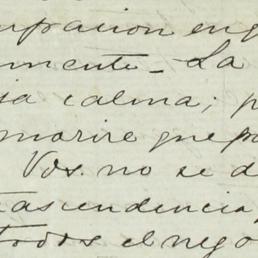 upracion en
mente - La
ia calma; p
morire que po
Vds. no se d
trascendencia,
todos el nego